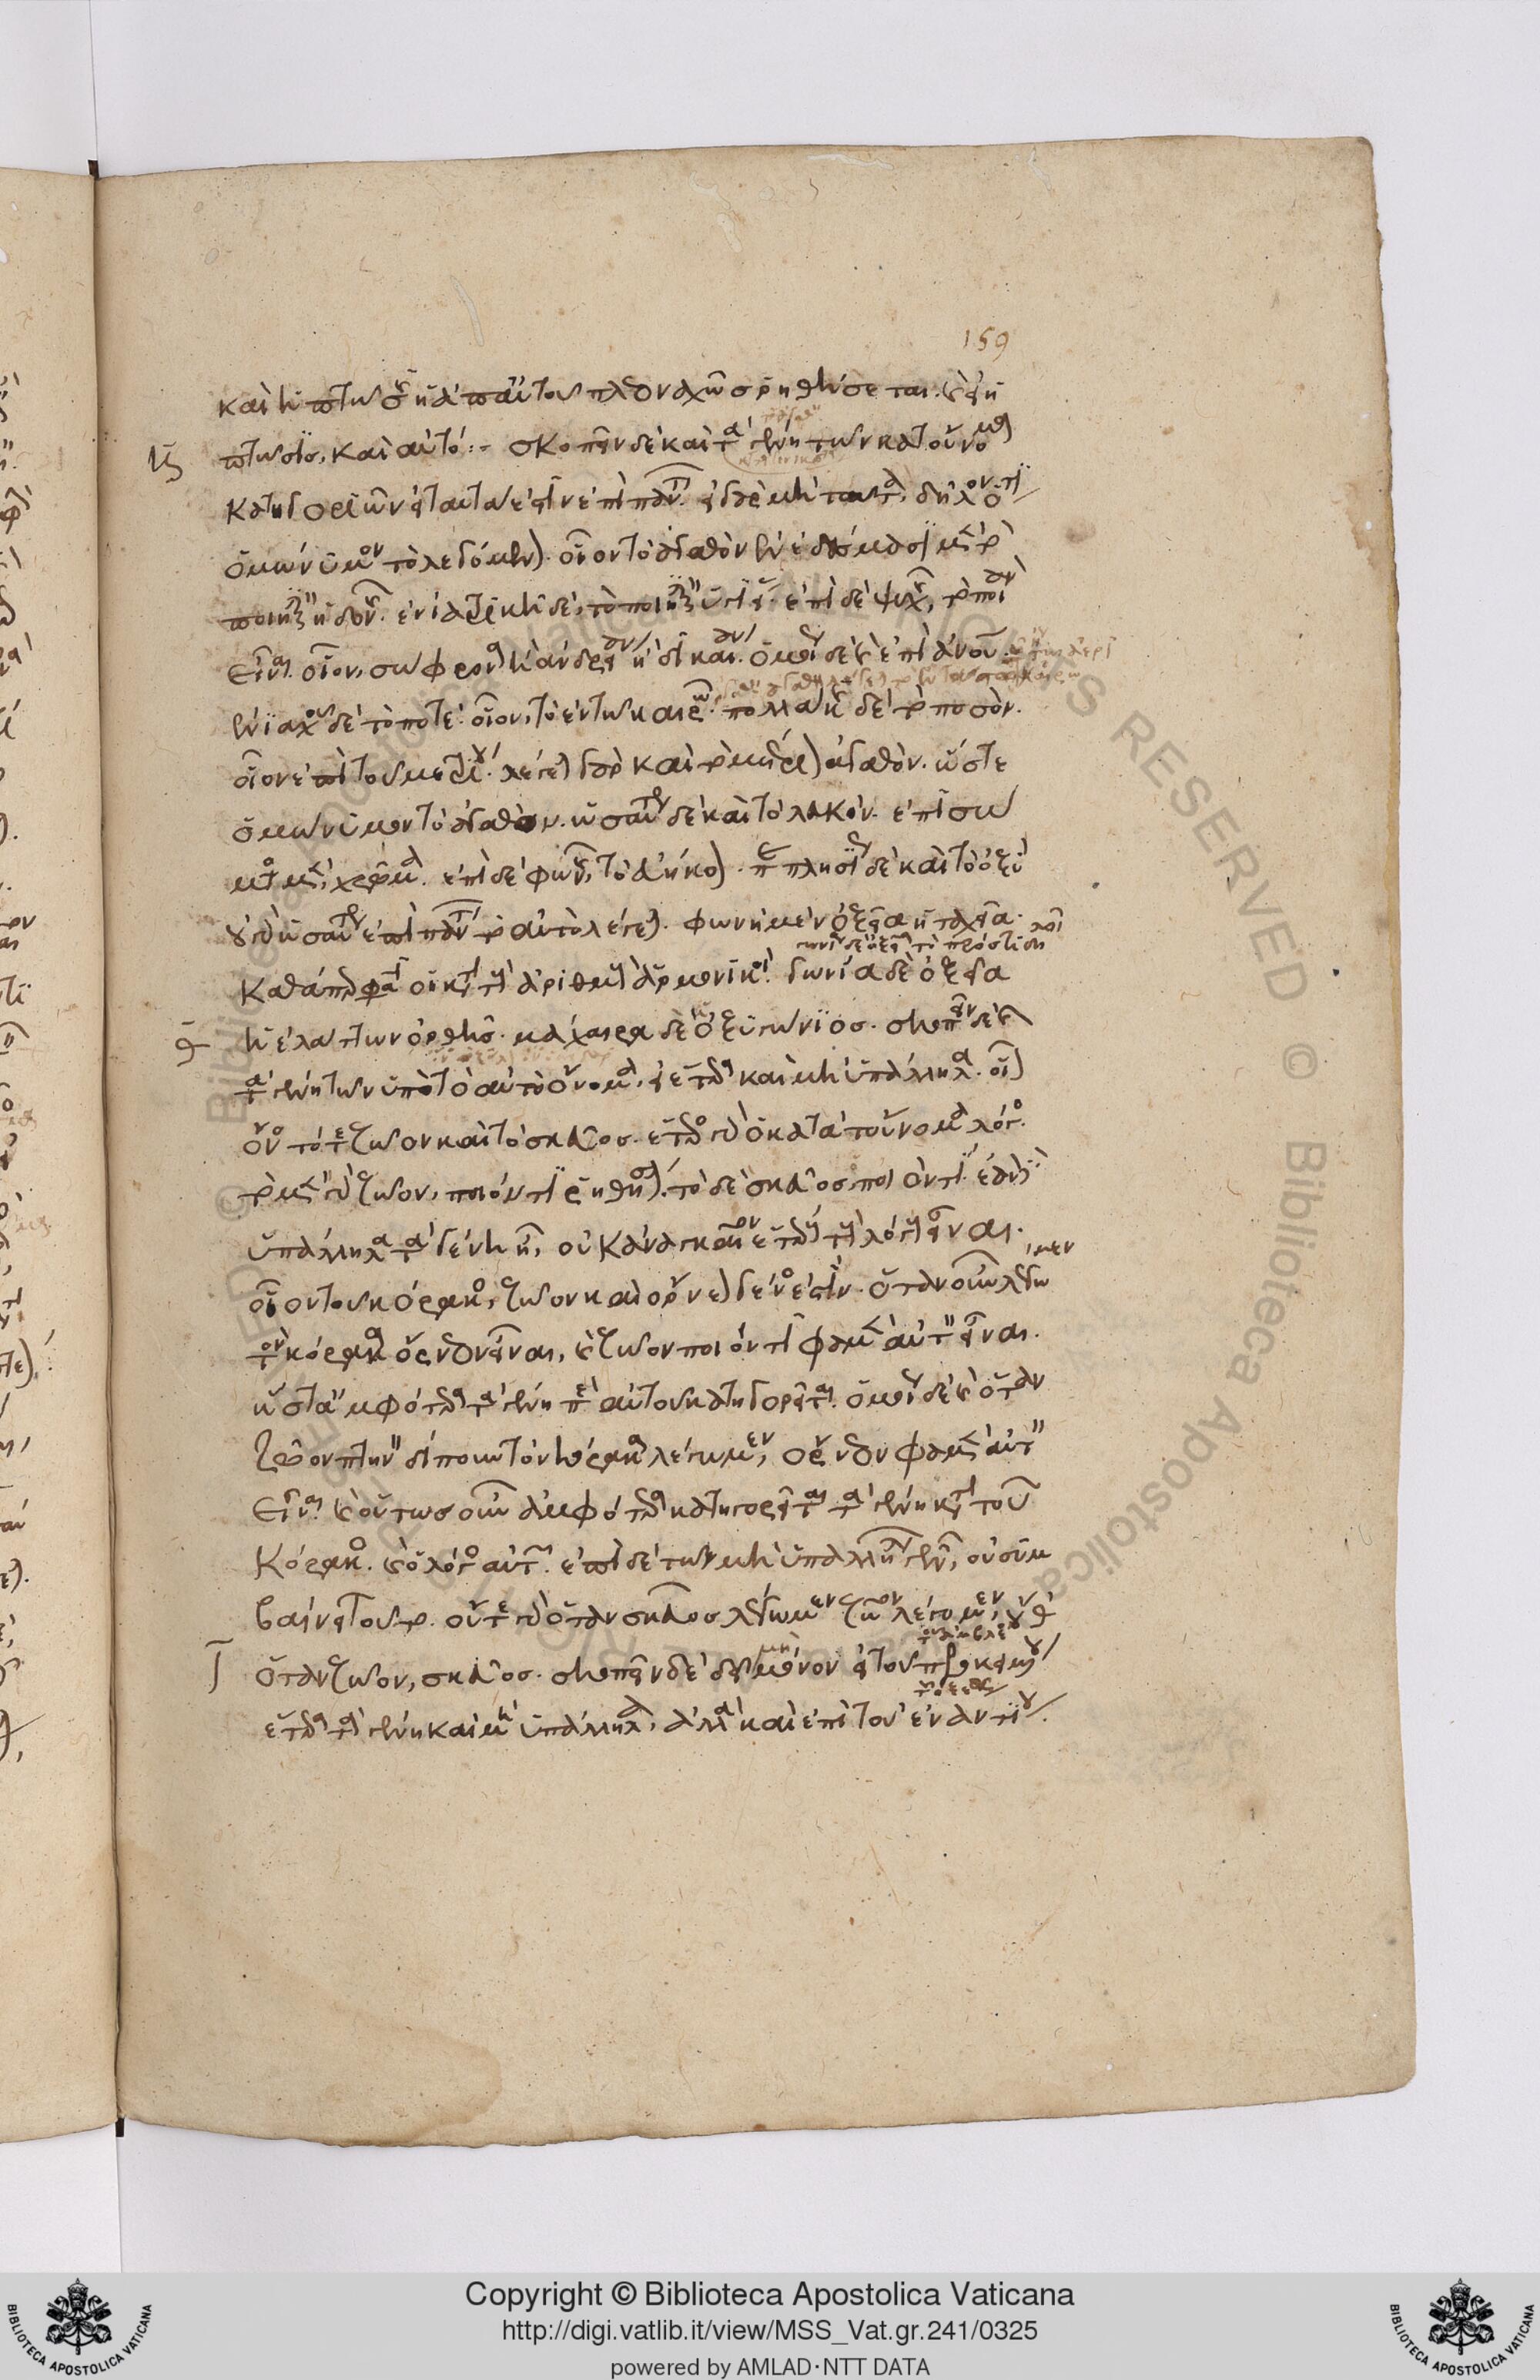 159
καὶ ἡ πτῶσις ἡ ἀπ' αὐτοῦ πλεοναχῶς ῥηθήσεται. καὶ εἰ ἡ
πτῶσις, καὶ αὐτό :- σκοπεῖν δὲ καὶ τὰ γένη τῶν κατὰ τοὔνομα
κατηγοριῶν εἰ ταὐτά ἐστιν ἐπὶ πάντων. εἰ γὰρ μὴ ταὐτά, δῆλον ὅτι
ὁμώνυμον τὸ λεγόμενον. οἷον τὸ ἀγαθὸν ἐν ἐδέσματι μὲν τὸ
ποιητικὸν ἡδονῆς. ἐν ἰατρικῇ δὲ, τὸ ποιητικὸν ὑγιείας. ἐπὶ δὲ ψυχῆς, τὸ ποιὰν
εἶναι. οἷον, σώφρονα ἢ ἀνδρείαν ἢ δικαίαν. ὁμοίως δὲ καὶ ἐπὶ ἀνθρώπου.
ἐνιαχοῦ δὲ τὸ ποτέ. οἷον, τὸ ἐν τῷ καιρῷ. πολλάκις δὲ τὸ ποσόν.
οἷον ἐπὶ τοῦ μετρίου. λέγεται γὰρ καὶ τὸ μέτριον ἀγαθόν. ὥστε
ὁμώνυμον τὸ ἀγαθόν. ὡσαύτως δὲ καὶ τὸ λευκόν. ἐπὶ σώ
ματος μὲν, χρῶμα. ἐπὶ δὲ φωνῆς, τὸ εὐήκοον. παραπλησίως δὲ καὶ τὸ ὀξύ
οὐ γὰρ ὡσαύτως ἐπὶ πάντων τὸ αὐτὸ λέγεται. φωνὴ μὲν ὀξεῖα ἡ ταχεῖα.
καθάπερ φασὶν οἱ κατὰ τοὺς ἀριθμοὺς ἁρμονικοί. γωνία δὲ ὀξεῖα
ἡ ἐλάττων ὀρθῆς. μάχαιρα δὲ ἡ ὀξυγώνιος. σκοπεῖν δὲ καὶ
τὰ γένη τῶν ὑπὸ τὸ αὐτὸ ὄνομα, εἰ ἕτερα καὶ μὴ ὑπάλληλα. οἷον
ὄνος τό τε ζῷον καὶ τὸ σκεῦος. ἕτερος γὰρ ὁ κατὰ τοὔνομα λόγος.
τὸ μὲν γὰρ ζῷον, ποιόν τι ῥηθήσεται. τὸ δὲ σκεῦος, ποιόν τι. ἐὰν δὲ
ὑπάλληλα τὰ γένη ᾖ, οὐκ ἀναγκαῖον ἑτέρους τοὺς λόγους εἶναι.
οἷον τοῦ κόρακος, ζῷον καὶ ὄρνεον γένος ἐστίν. ὅταν οὖν λέγω
μεν
τὸν κόρακα ὄρνεον εἶναι, καὶ ζῷον ποιόν τι φαμὲν αὐτὸν εἶναι.
ὥστ' ἀμφότερα τὰ γένη περὶ αὐτοῦ κατηγορεῖται. ὁμοίως δὲ καὶ ὅταν
ζῷον πτηνὸν δίπουν τὸν κόρακα λέγωμεν, ὄρνεόν φαμεν αὐτὸν
εἶναι. καὶ οὕτως οὖν ἀμφότερα κατηγορεῖται τὰ γένη κατὰ τοῦ
κόρακος. καὶ ὁ λόγος αὐτῶν. ἐπὶ δὲ τῶν μὴ ὑπαλλήλων γενῶν, οὐ συμ
βαίνει τοῦτο. οὔτε γὰρ ὅταν σκεῦος λέγωμεν, ζῷον λέγομεν, οὔθ'
ὅταν ζῷον, σκεῦος. σκοπεῖν δὲ μὴ μόνον εἰ τοῦ προκειμένου
ἕτερα τὰ γένη καὶ μὴ ὑπάλληλα, ἀλλὰ καὶ ἐπὶ τοῦ ἐναντίου.
© Biblioteca Apostolica Vaticana ALL RIGHTS RESERVED
Copyright © Biblioteca Apostolica Vaticana
http://digi.vatlib.it/view/MSS_Vat.gr.241/0325
powered by AMLAD·NTT DATA
BIBLIOTECA APOSTOLICA VATICANA
BIBLIOTECA APOSTOLICA VATICANA